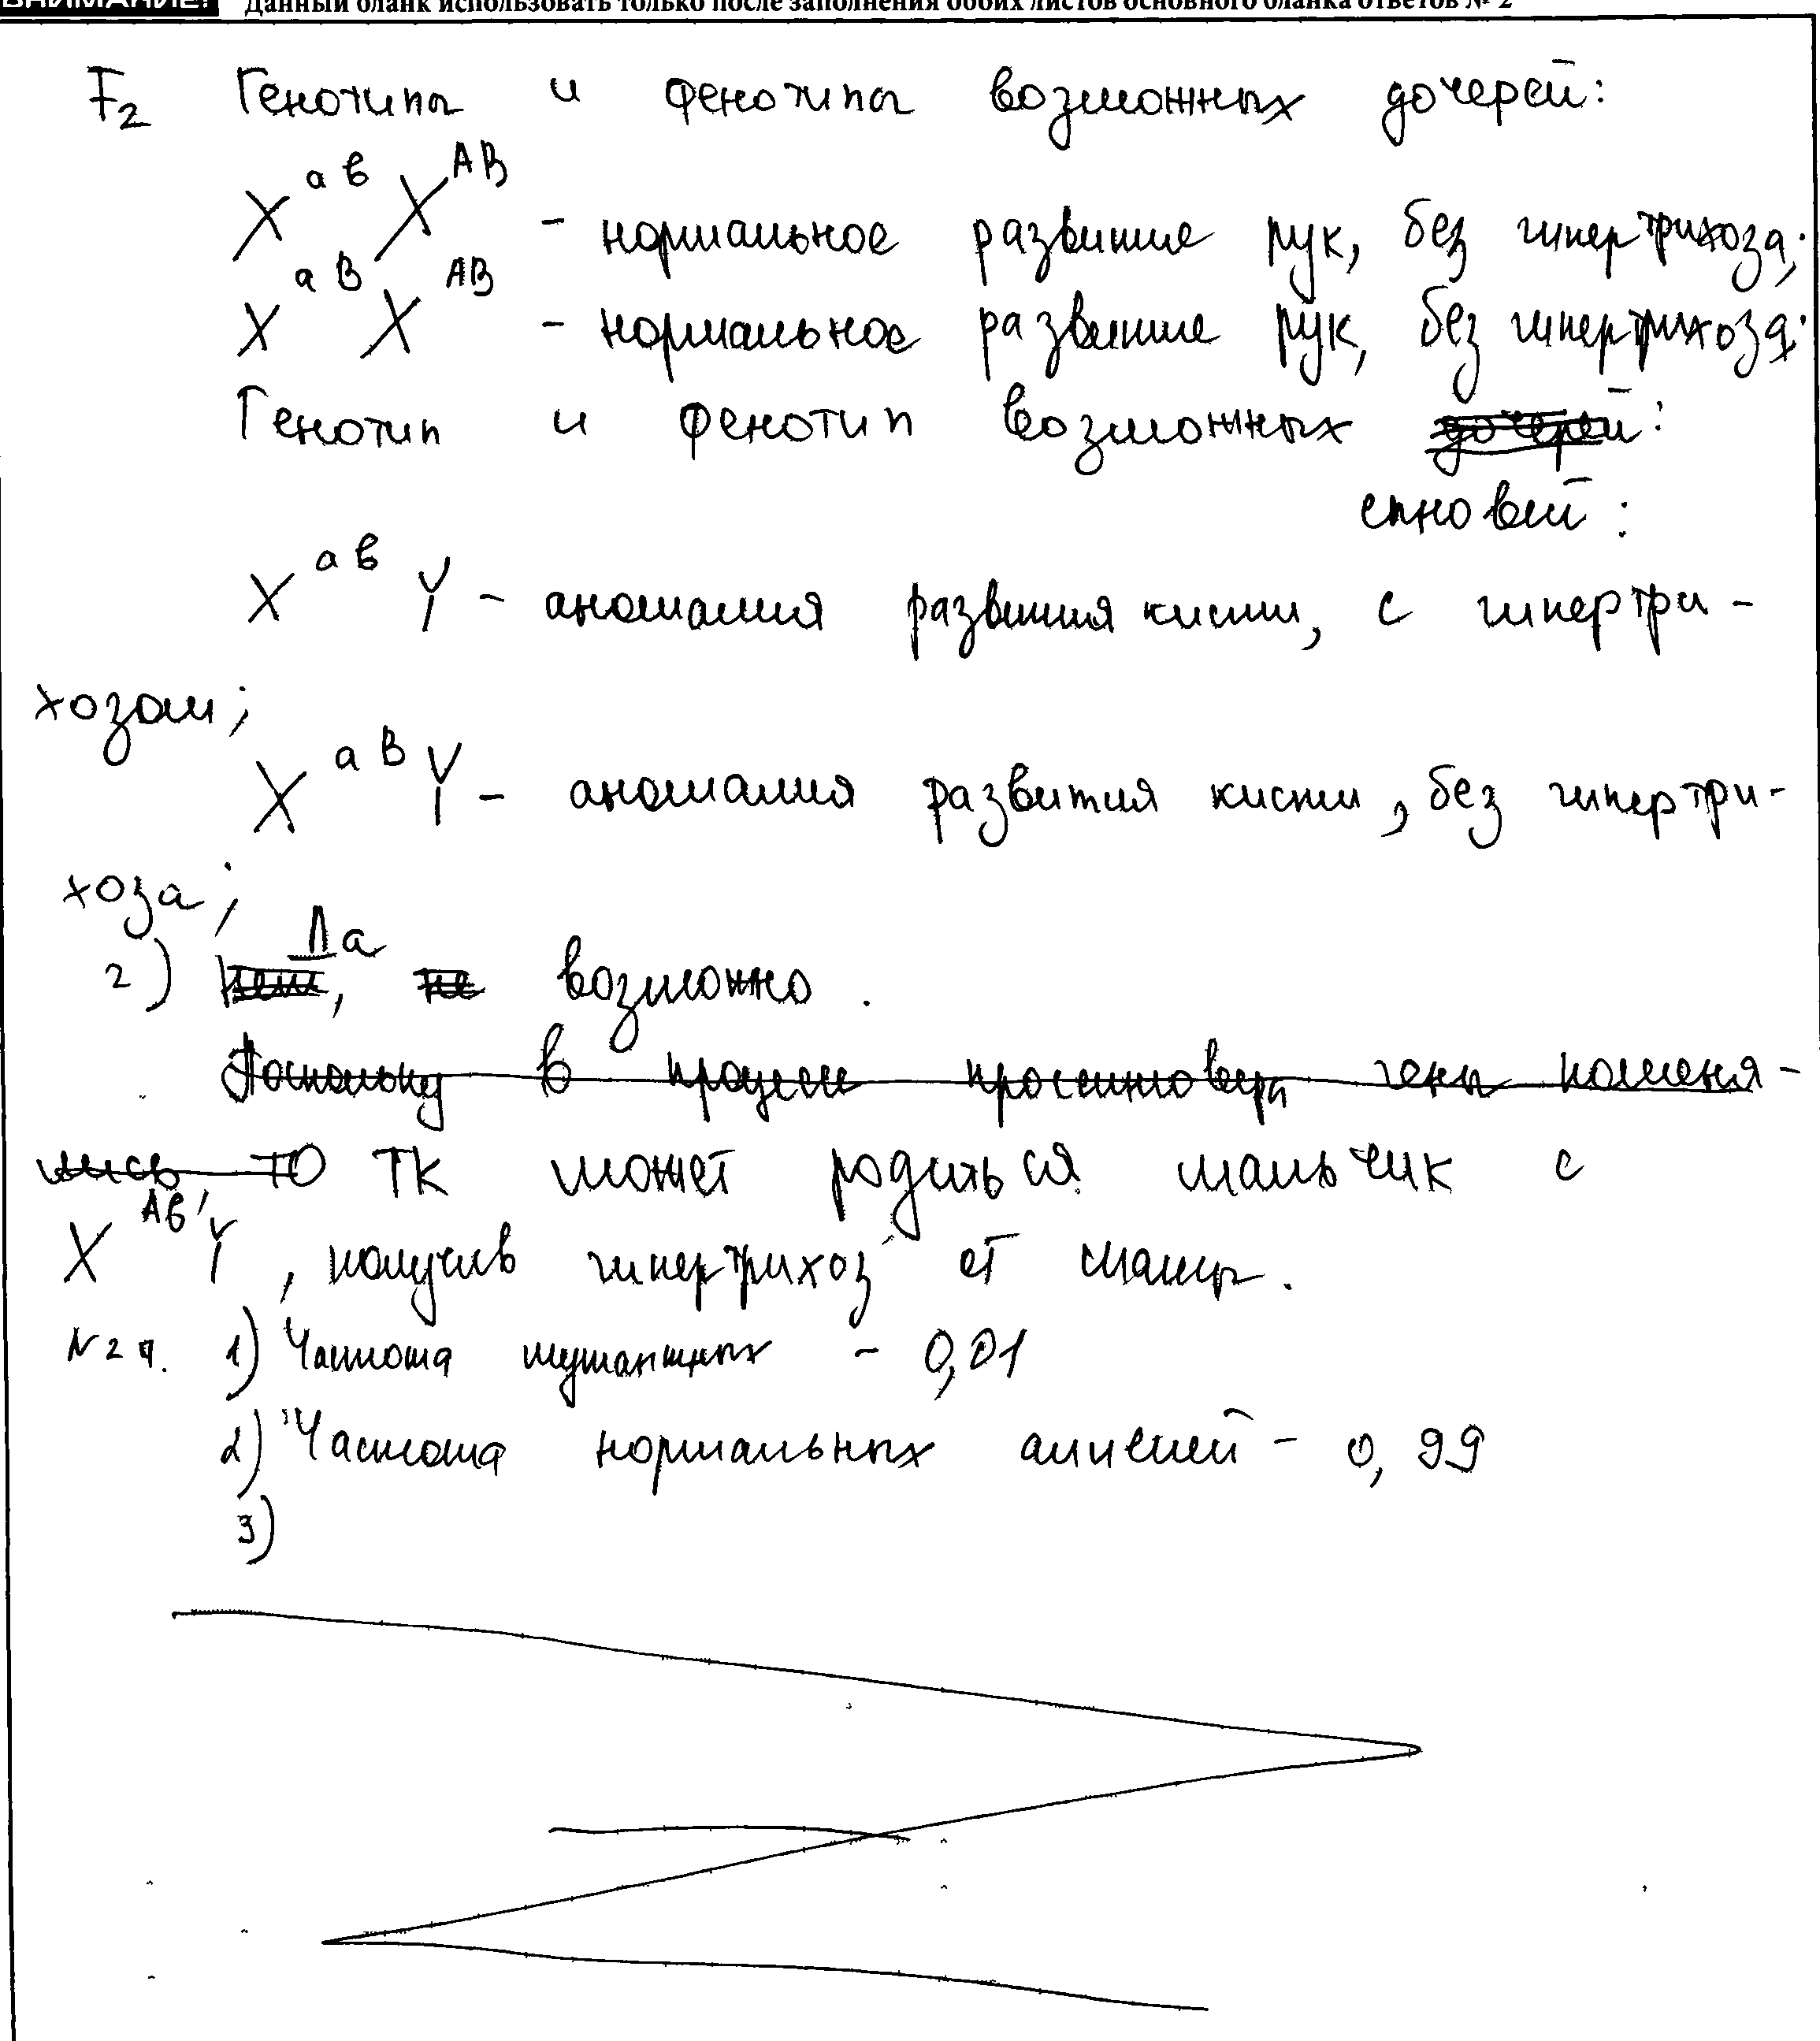 ВНИМАНИЕ! Данный бланк использовать только после заполнения обоих листов основного бланка ответов № 2
F₂ Генотипы и фенотипы возможных дочерей:
X^ав X^АВ - нормальное развитие рук, без гипертрихоза;
X^аВ X^АВ - нормальное развитие рук, без гипертрихоза;
Генотип и фенотип возможных дочерей:
сыновей:
X^ав Y - аномалия развития кисти, с гипертри-
хозом;
X^аВ Y - аномалия развития кисти, без гипертри-
хоза;
Да
2) Нет, не возможно.
Поскольку в процессе кроссинговера гены поменя-
лись ТО ТК может родиться мальчик с
X^Ав Y, получив гипертрихоз от мамы.
N 27. 1) Частота мутантных - 0,01
2) Частота нормальных аллелей - 0,99
3)